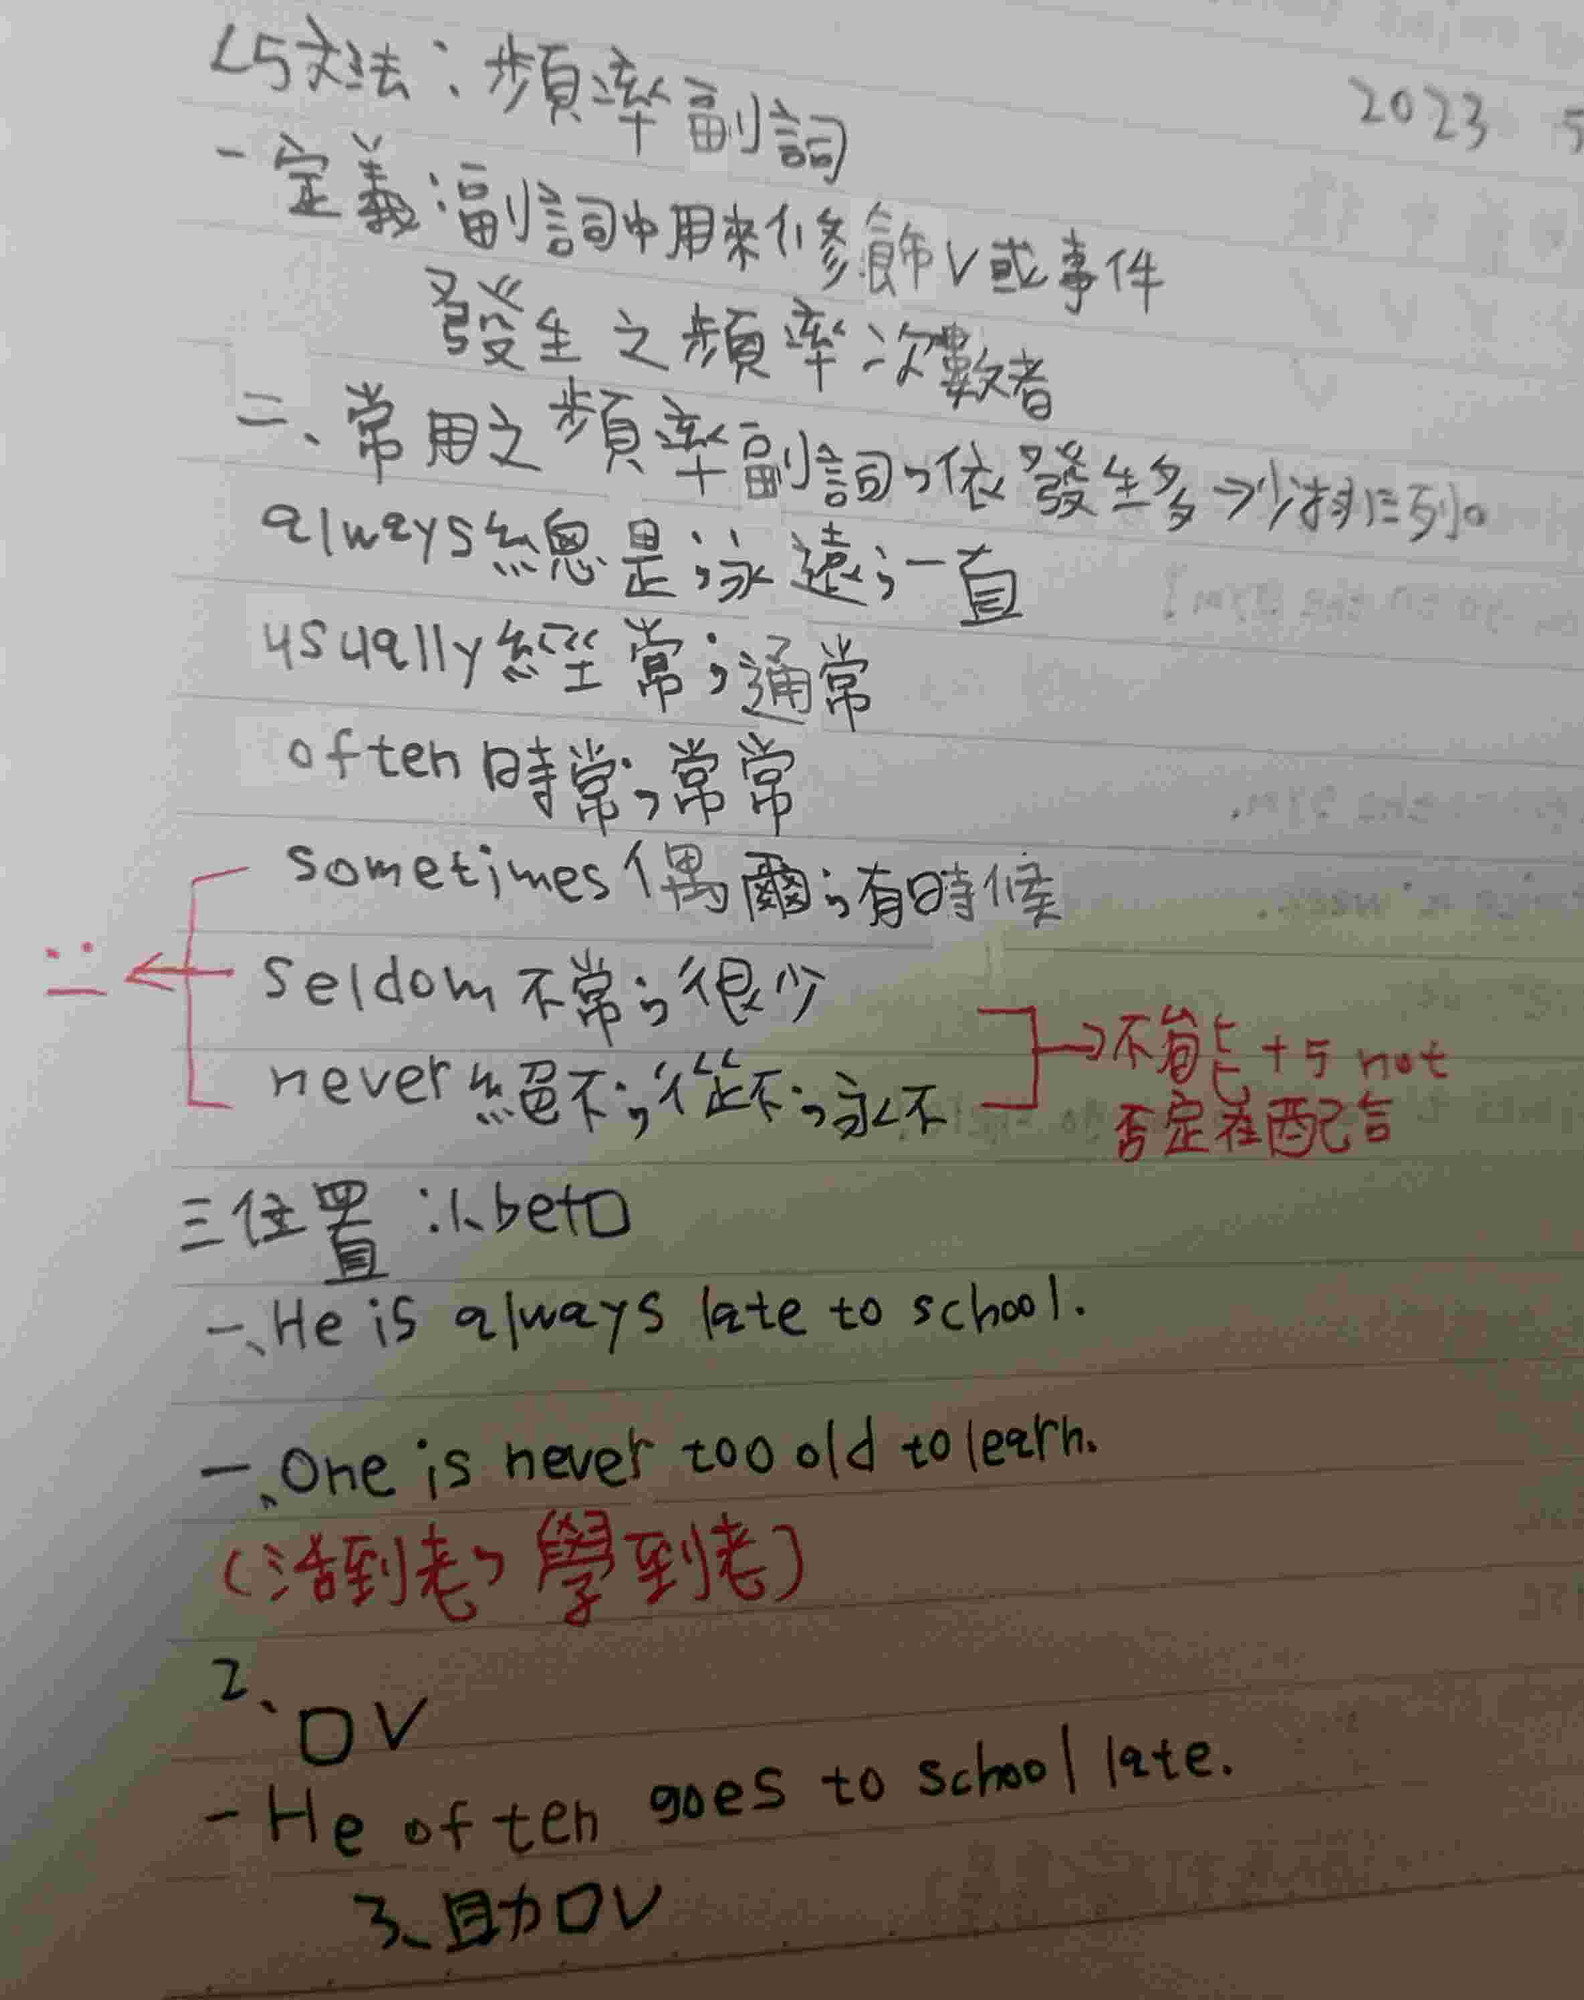 L5文法：頻率副詞
2023 5
一定義：副詞中用來修飾V或事件
發生之頻率次數者
二、常用之頻率副詞，依發生多→少排列。
always總是；永遠；一直
usually經常；通常
often時常；常常
sometimes偶爾；有時候
seldom不常；很少
never絕不；從不；永不
不能+5 not
否定在配言
三位置：1、beto口
一、He is always late to school.
一、One is never too old to learn.
(活到老，學到老)
2、
口V
-He often goes to school late.
3、助口V